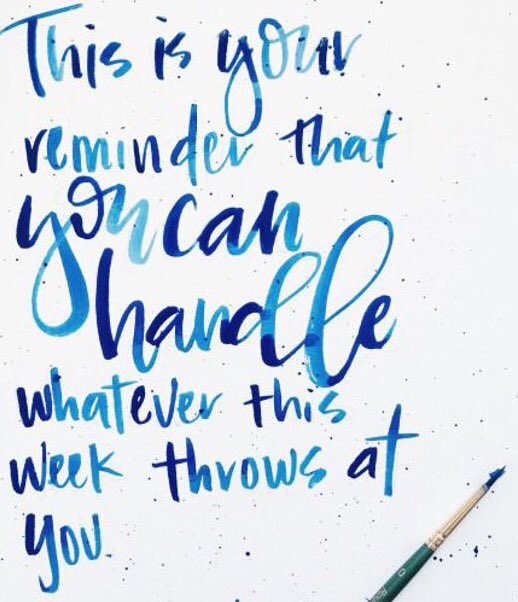 This is your
reminder that
you can
handle
whatever this
week throws at
you.